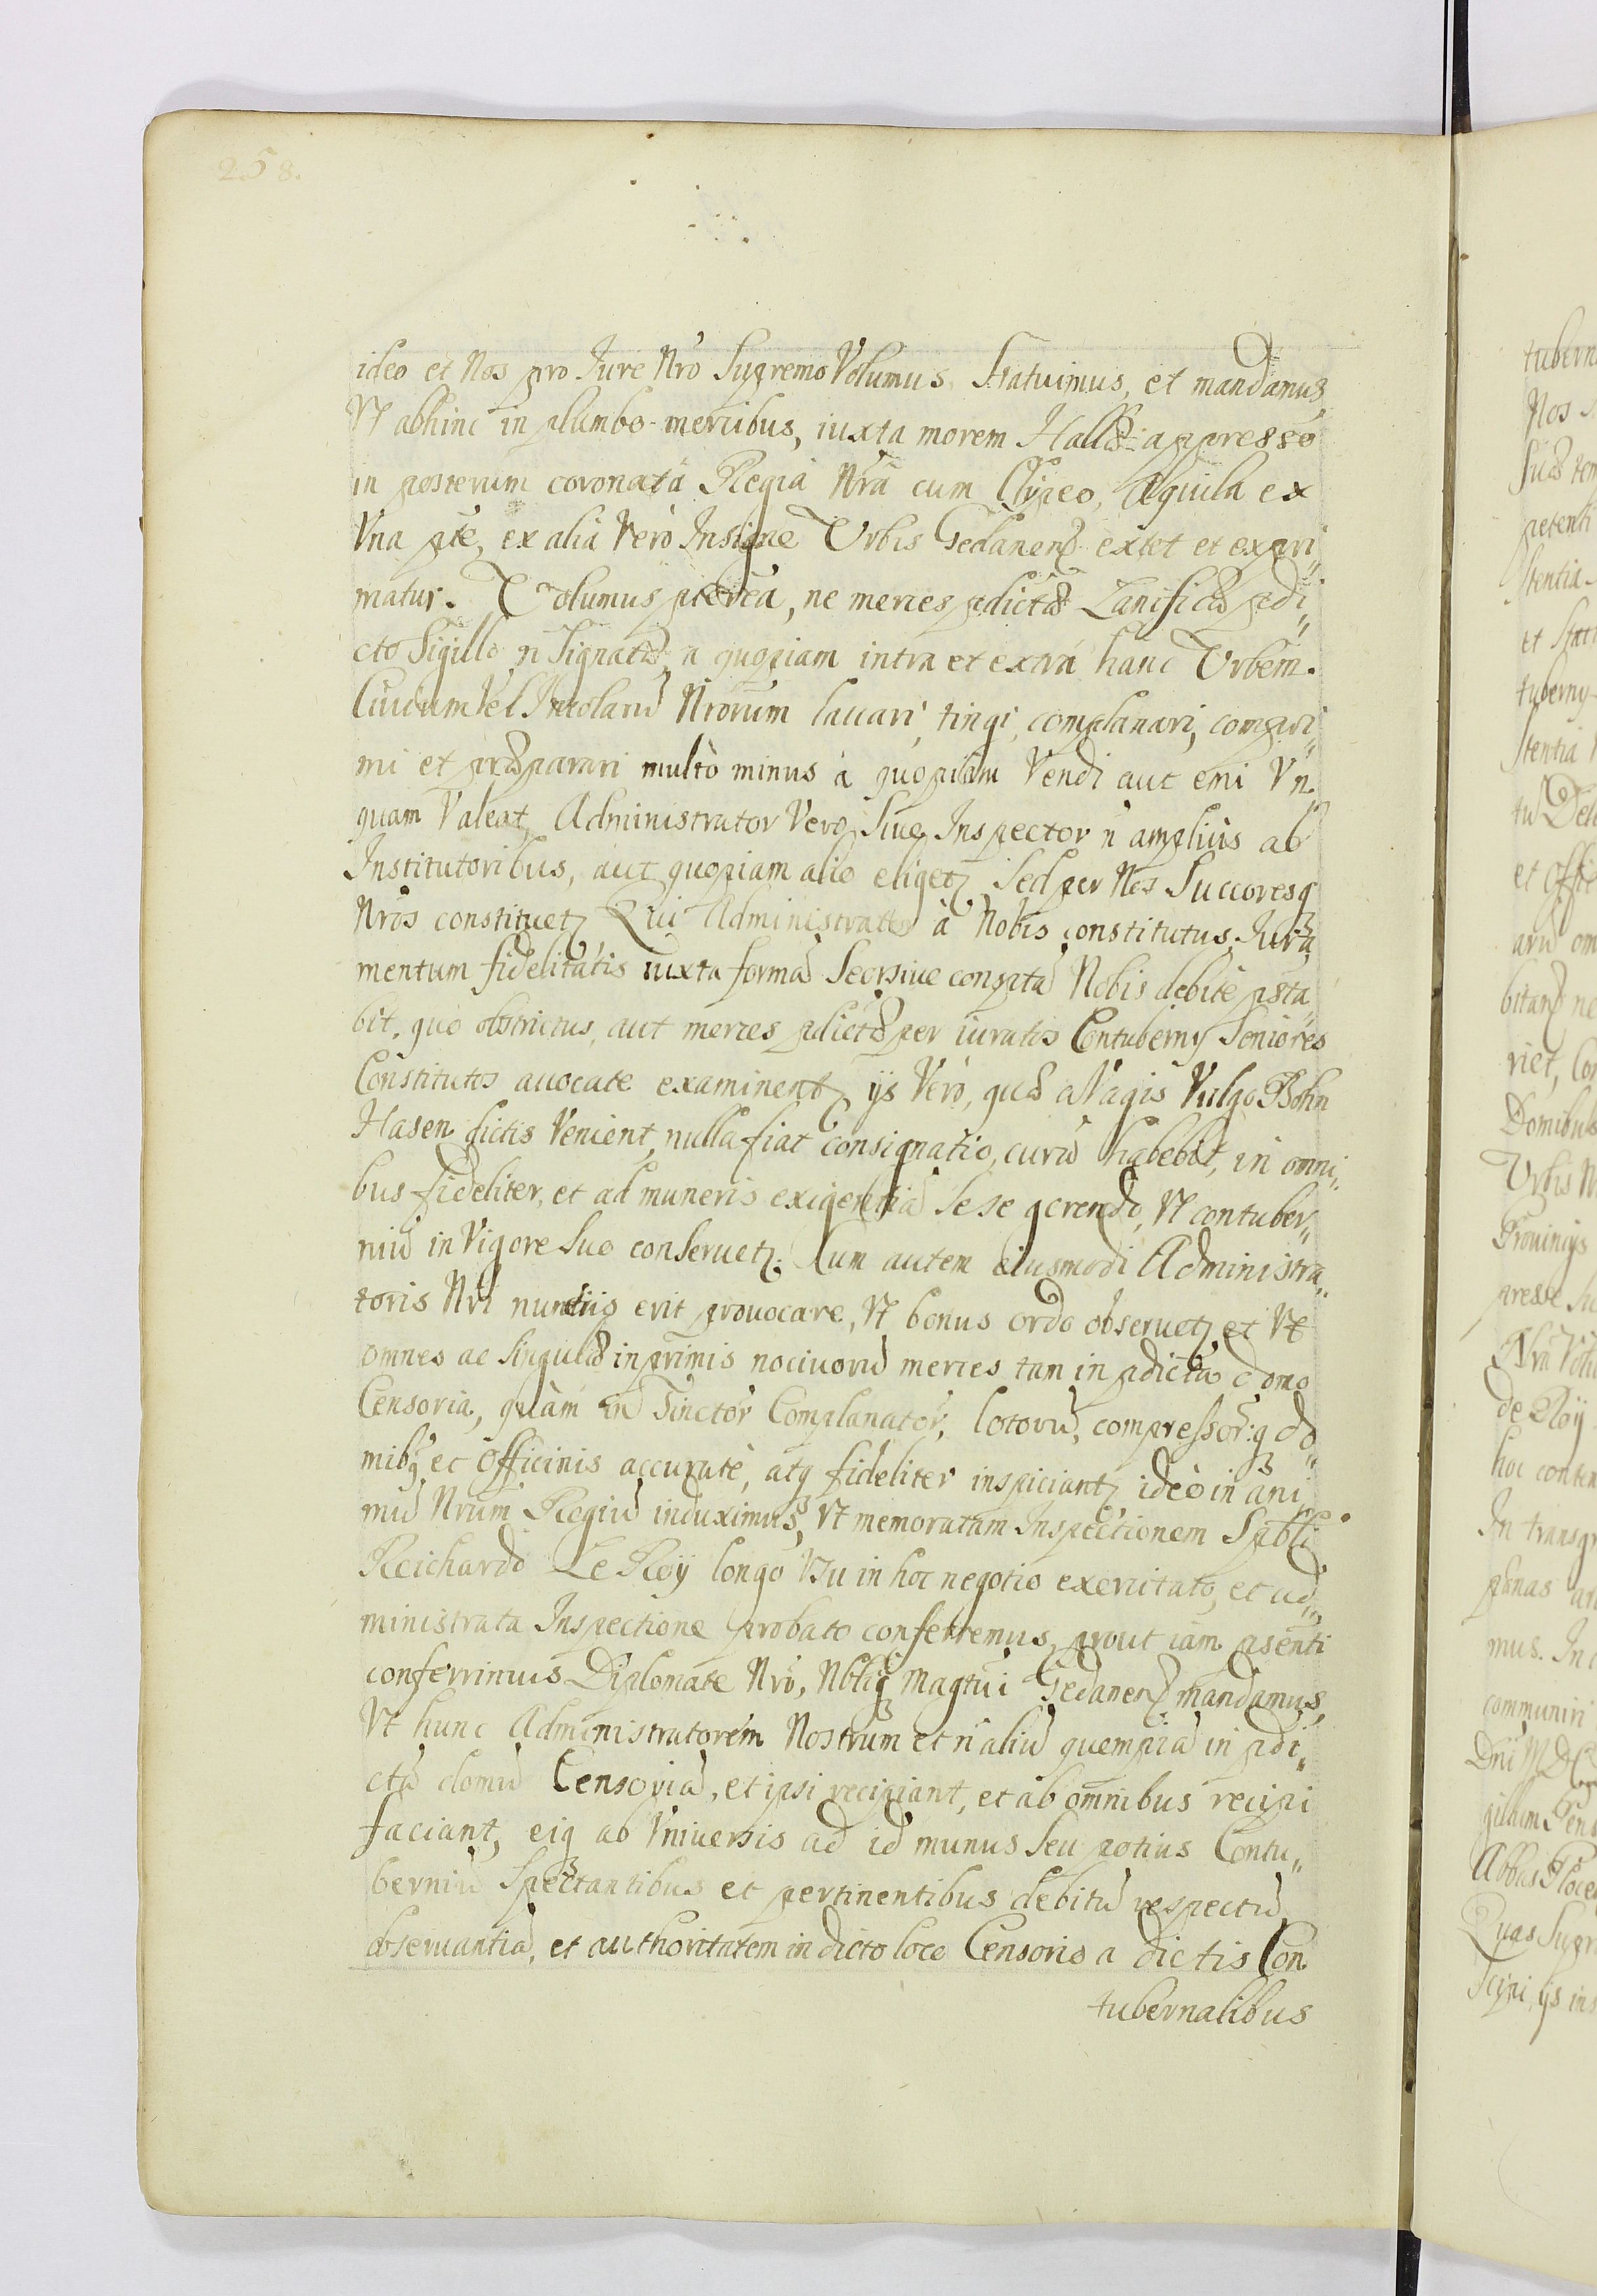 258.
ideo et Nos pro Jure Nro Supremo Volumus Statuimus, et mandamus,
Vt abhinc in plumbo mercibus, iuxta morem Hallæ appresso
in posterum coronata Regia Nra cum Clypeo, Aquila ex
Vna pte, ex alia verò Insigne Vrbis Gedanens extet et expri„
matur. Volumus pterea, ne merces pdictæ Lanificæ pdi„
cto Sigillo n̄ Signatæ, a quopiam intra et extra hanc Vrbem.
Ciuium Vel Incolarū Nrorum lauari, tingi, complanari, compri„
mi et præparari multò minus à quopiam Vendi aut emi Vn
quam Valeat, Administrator Vero, Siue Inspector n̄ amplius ab
Institutoribus, aut quopiam alio eliget, Sed per Nos Succoresq
Nros constituet, Qui Administrator à Nobis constitutus, Jura„
mentum fidelitatis iuxta formā Seorsiue consptā Nobis debitè psta„
bit, quo obstrictus, aut merces pdictæ per iuratos Contuberny Seniores
Constitutos auocate examinent, ijs Verò, quæ a Vagis Vulgo Bohn
Hasen dictis Venient, nulla fiat consignatio, curā habebit, in omni„
bus fideliter, et ad muneris exigentiā Sese gerendo, Vt contuber„
niū in Vigore Suo conseruet. Cum autem eiusmodi Administra„
toris Nri nuntiis erit prouocare, Vt bonus ordo obseruet, et Vt
omnes ac Singulæ inprimis nociuorū merces tam in pdicta domo
Censoria, quàm in Tinctor Complanator, lotorū, compressor:q do„
mibq et Officinis accuratè, atq fideliter inspiciant, ideò in ani„
mū Nrum Regiū induximus, Vt memoratam Inspectionem Spbli
Reichardo Le Roÿ longo Vsu in hoc negotio exercitato, et ad„
ministrata Inspectione probato conferremus, prout iam psenti
conferrimus Diplomate Nro, Nbliq Magtui Gedanens mandamus,
Vt hunc Administratorem Nostrum et n̄ aliū quempiā in pdi„
ctā domū Censoriā, et ipsi recipiant, et ab omnibus recipi
faciant, eiq ab Vniuersis ad id munus Seu potius Contu„
berniū Spectantibus et pertinentibus debitū respectū,
obseruantiā, et authoritatem in dicto loco Censorio a dictis Con
tubernalibus